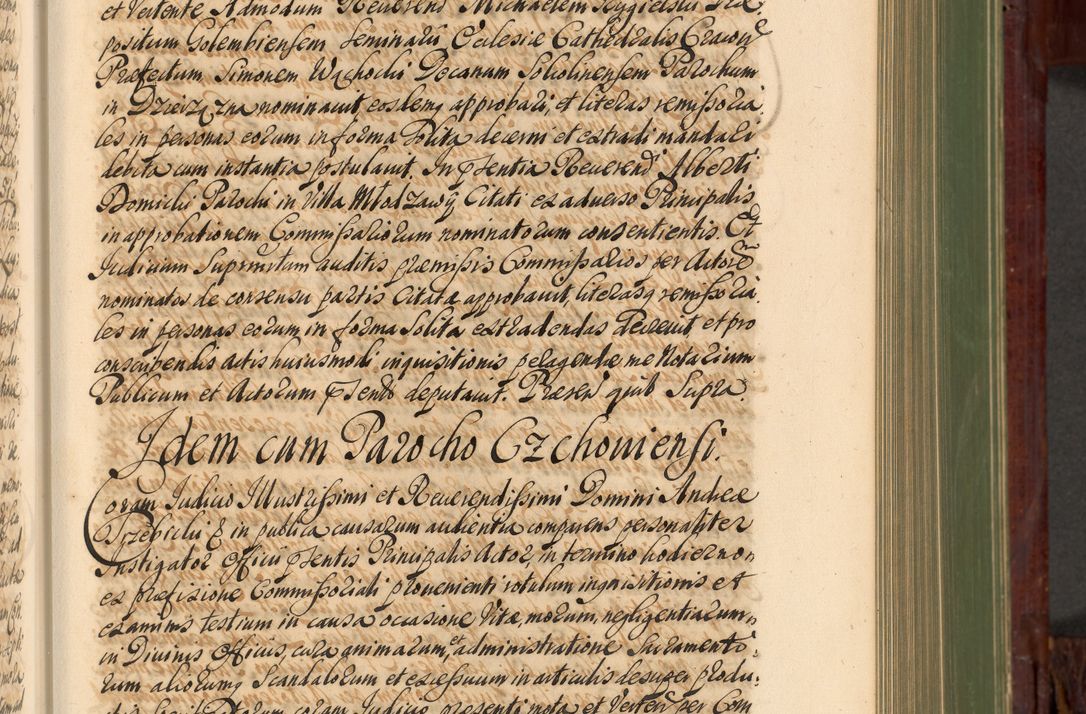 et Vertente Admodum Reuerend Michaelem Rygielski Præ
positum Golembiensem Seminarii Ecclesiæ Cathedralis Cracou
Præfectum Simonem Wąchocki Decanum Sokolinensem Parochum
in Dzierązna nominauit, eosdemq approbari, et literas remissoria
les in personas eorum in forma solita decerni et extradi mandari
debita cum instantia postulauit. In pñsentia Reuerend Alberti
Domicki Parochi in Villa Młodzawy Citati ex aduerso Principalis
in approbationem Commissariorum nominatorum consentientis. Et
Iudicium Supremum auditis præmissis Commissarios per Actorẽ
nominatos de consensu partis Citatæ approbauit, literasq remissoria
les in personas eorum in forma solita extradendas Decreuit et pro
conscribendis actis huiusmodi inquisitionis peragendæ me Notarium
Publicum et Actorum pñsentẽ deputauit. Præsen quib Supra.
Idem cum Parocho Czchouiensi.
Coram Iudicio Illustrissimi et Reuerendissimi Domini Andreæ
Trzebicki & in publica causarum audientia comparens personaliter
Instigator Officii pñsentis Principalis Actor, in termino hodierno
ex præfixione Commissoriali prouenienti rotulum inquisitionis et
examinis testium in causa occasione Vitæ, morum, negligentiarum
in Diuinis Officiis, cura animarum, et administratione Sacramento
rum aliorumq Scandalorum et excessuum in articulis desuper produ
coram Iudicio præsenti mota et Verten per Com